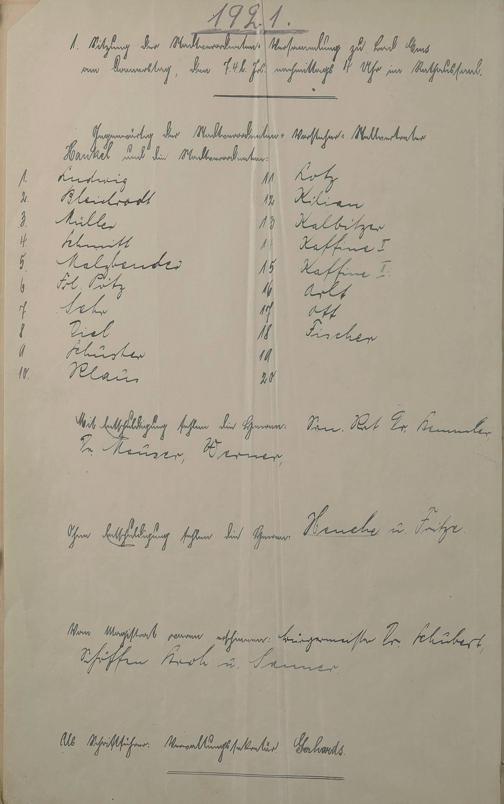 1921.
1. Sitzung der Stadtverordneten-Versammlung zu Bad Ems
am Donnerstag, dem 7.4. d. Js. nachmittags 4 Uhr im Rathaussaal.
Gegenwärtig der Stadtverordneten-Vorsteher-Stellvertreter
Hankel und die Stadtverordneten:
1. Ludwig
2. Bleidradt
3. Müller
4 Schmitt
5 Malzbender
6 Frl. Pötz
7. Sehr
8 Diel
9 Schuster
10. Klaus
11 Lotz
12 Kilian
13 Kalbitzer
1 Kaffine I
15 Kaffine I
16 Arlt
17 Ott
18 Fischer
19
20
Mit Entschuldigung fehlen die Herren: San. Rat Dr.
Dr. Mauser, Werner,
Ohne Entschuldigung fehlen die Herren: Henche u. Fritze.
Vom Magistrat waren erschienen: Bürgermeister Dr. Schubert,
Schöffen u. Sauner.
Als Schriftführer: Verwaltungssekretär Gerhards.